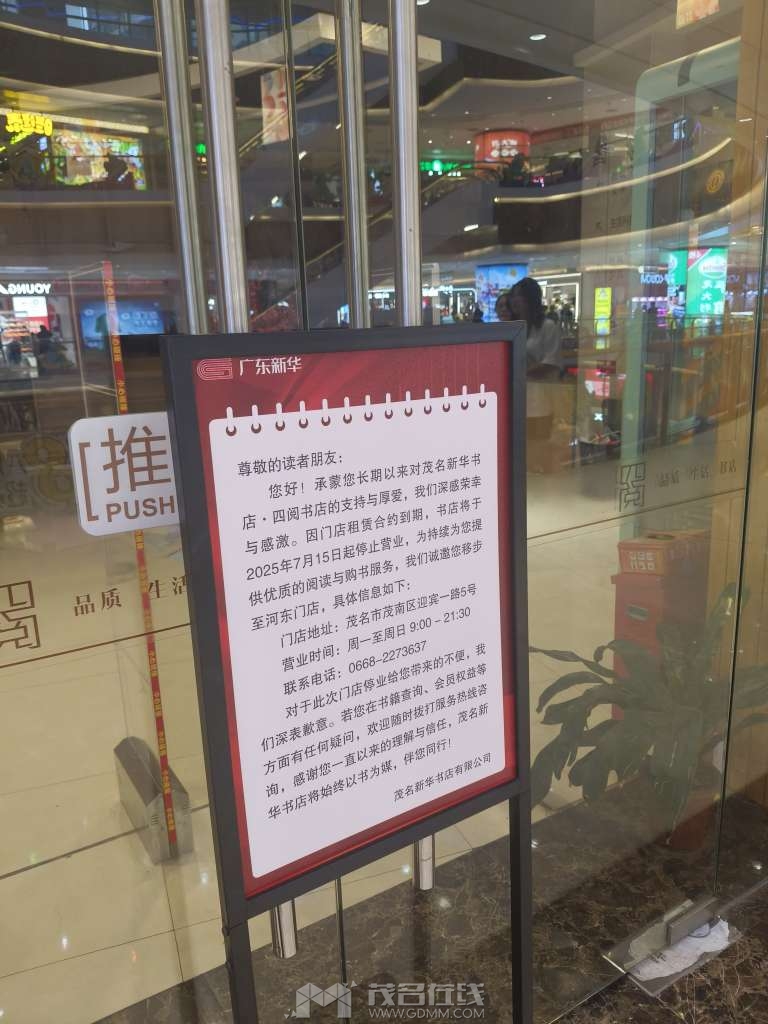 YOUNG
小心玻璃
[推
PUSH
品质 生活
广东新华
尊敬的读者朋友：
您好！承蒙您长期以来对茂名新华书
店·四阅书店的支持与厚爱，我们深感荣幸
与感激。因门店租赁合约到期，书店将于
2025年7月15日起停止营业，为持续为您提
供优质的阅读与购书服务，我们诚邀您移步
至河东门店，具体信息如下：
门店地址：茂名市茂南区迎宾一路5号
营业时间：周一至周日 9:00－21:30
联系电话：0668-2273637
对于此次门店停业给您带来的不便，我
们深表歉意。若您在书籍查询、会员权益等
方面有任何疑问，欢迎随时拨打服务热线咨
询，感谢您一直以来的理解与信任，茂名新
华书店将始终以书为媒，伴您同行！
茂名新华书店有限公司
茂名在线
WWW.GDMM.COM